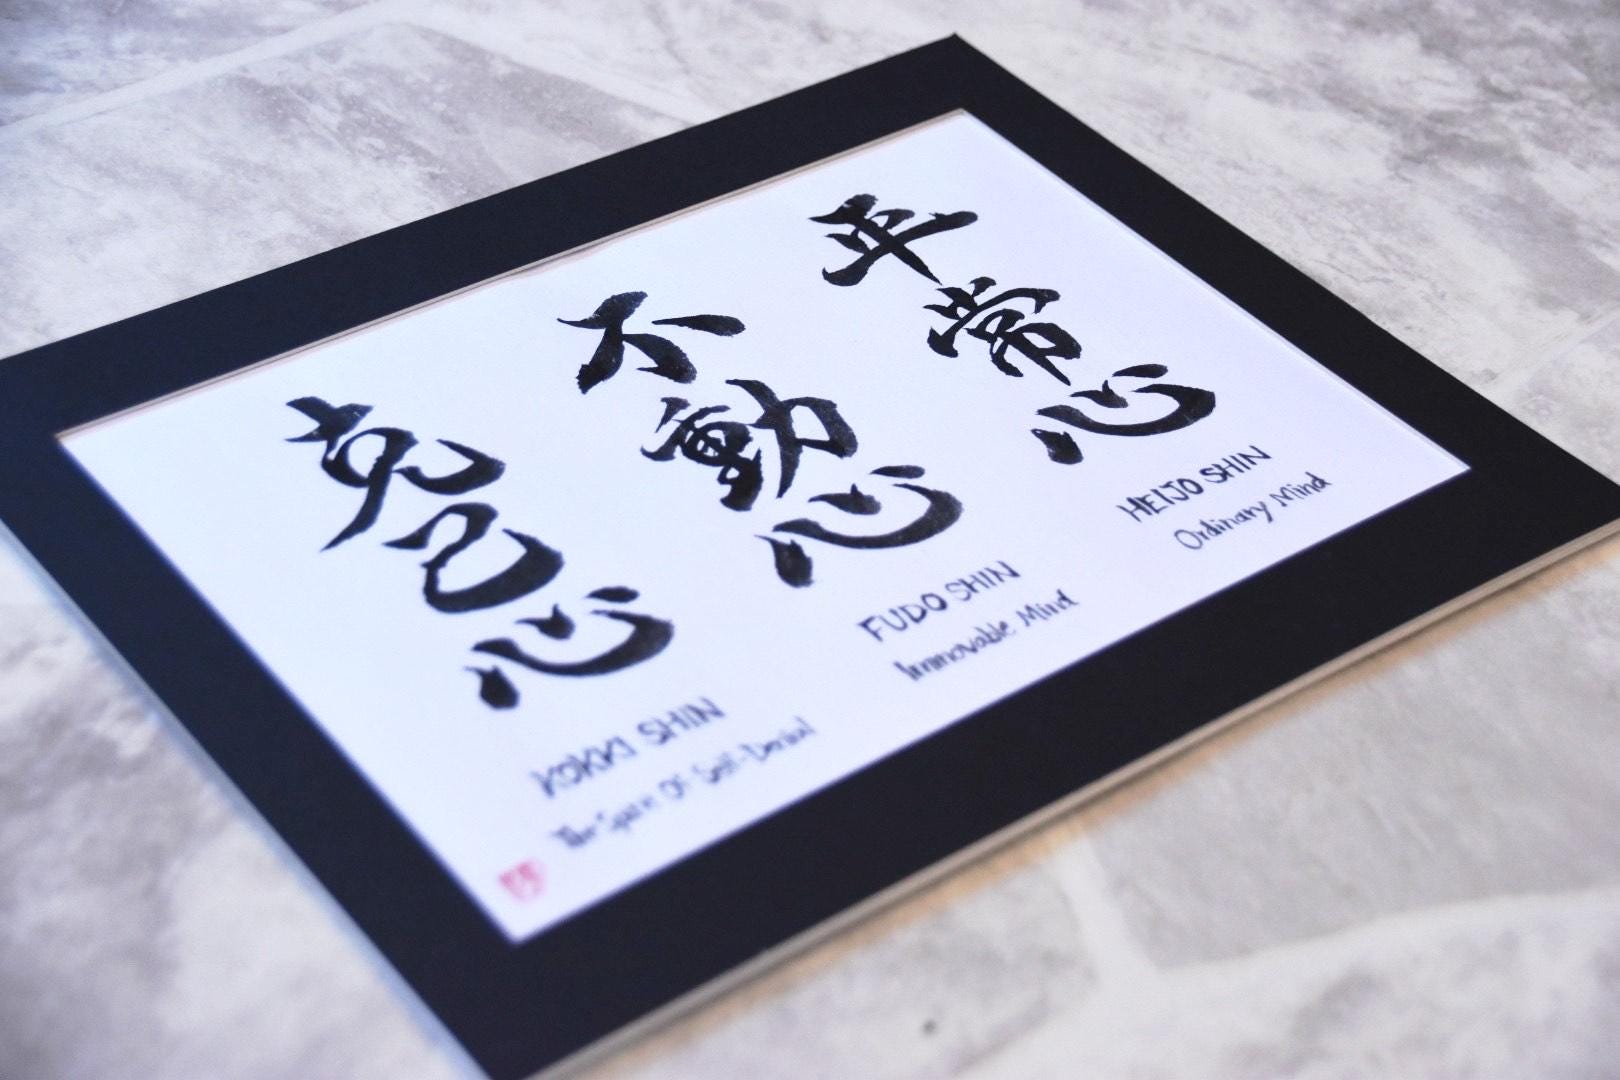 平常心
HEIJO SHIN
Ordinary Mind
不動心
FUDO SHIN
Immovable Mind
克己心
KOKKI SHIN
The Spirit Of Self-Denial